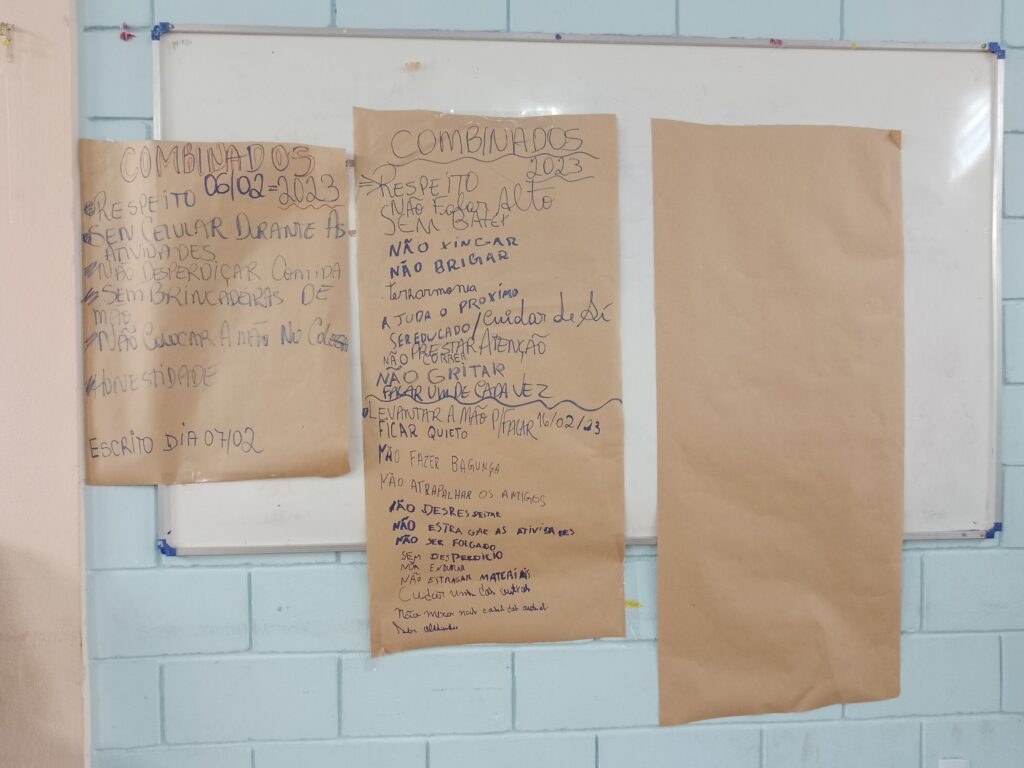 COMBINADOS
06/02=2023
RESPEITO
SEN CELULAR DURANTE AS
ATIVIDADES
NÃO DESPERDIÇAR COMIDA
SEM BRINCADEIRAS DE
MÃO
NÃO COLOCAR A MÃO NO
HONESTIDADE
ESCRITO DIA 07/02
COMBINADOS
2023
RESPEITO
NÃO Falar Alto
SEM BATER
NÃO XINGAR
NÃO BRIGAR
Ter harmonia
AJUDA O PROXIMO
SER EDUCADO/Cuidar de Sí
PRESTAR ATENÇÃO
NÃO CORRER
NÃO GRITAR
FALAR UM DE CADA VEZ
LEVANTAR A MÃO P/FALAR 16/02/23
FICAR QUIETO
NÃO FAZER BAGUNÇA
NÃO ATRAPALHAR OS AMIGOS
NÃO DESRESPEITAR
NÃO ESTRAGAR AS ATIVIDADES
NÃO SER FOLGADO
SEM DESPERDICIO
NÃO ESTRAGAR MATERIAIS
Cuidar uns dos outros
Não mexer